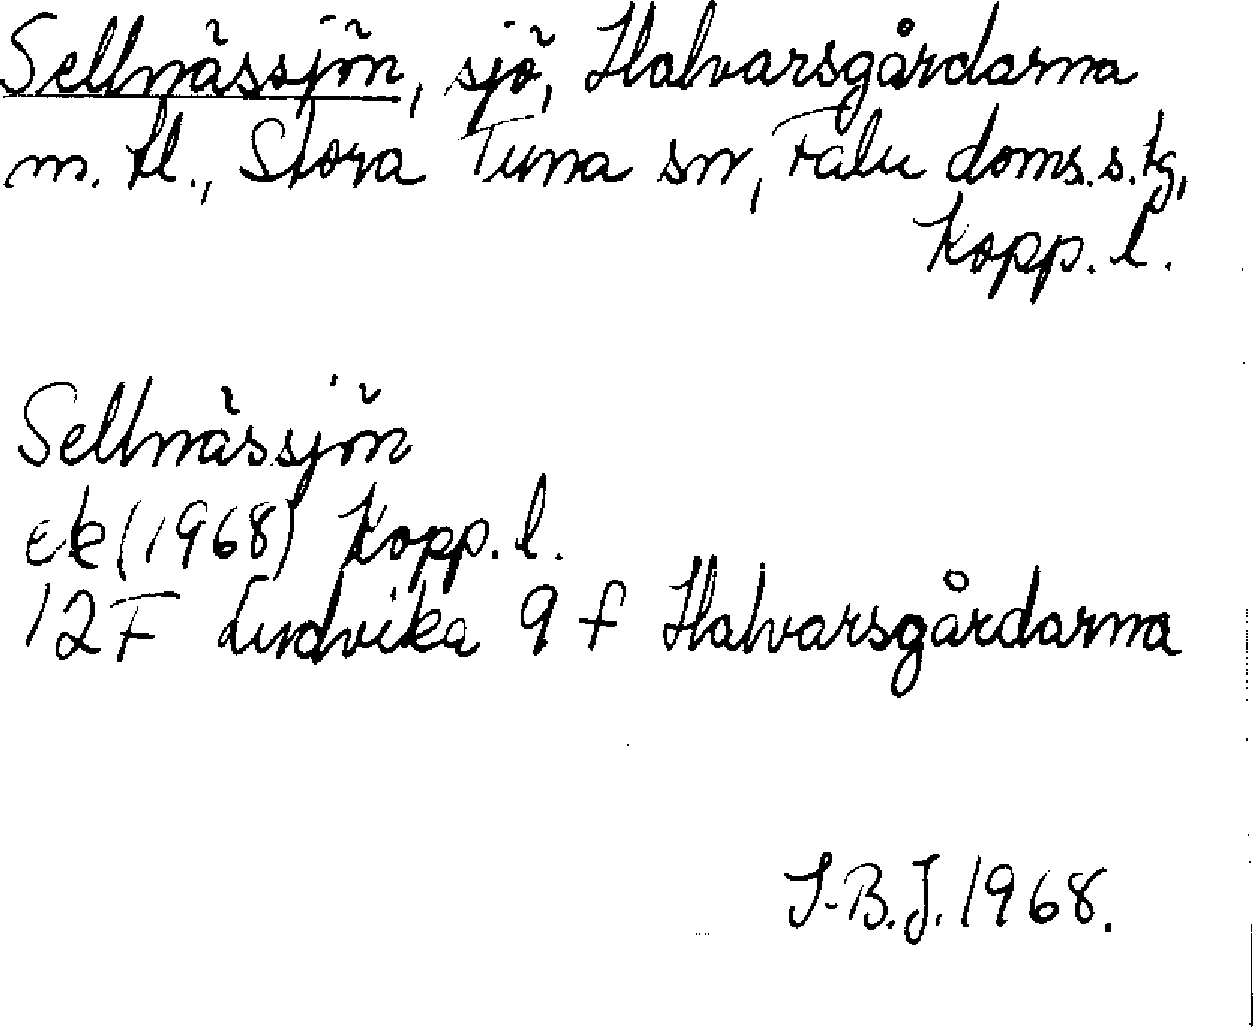 Sellnässjön, sjö, Halvarsgårdarna
m. fl., Stora Tuna sn, Falu doms.s. tg,
Kopp. l.
Sellnässjön
ek (1968) Kopp. l.
12F Ludvika 9 f Halvarsgårdarna
I-B.J. 1968.